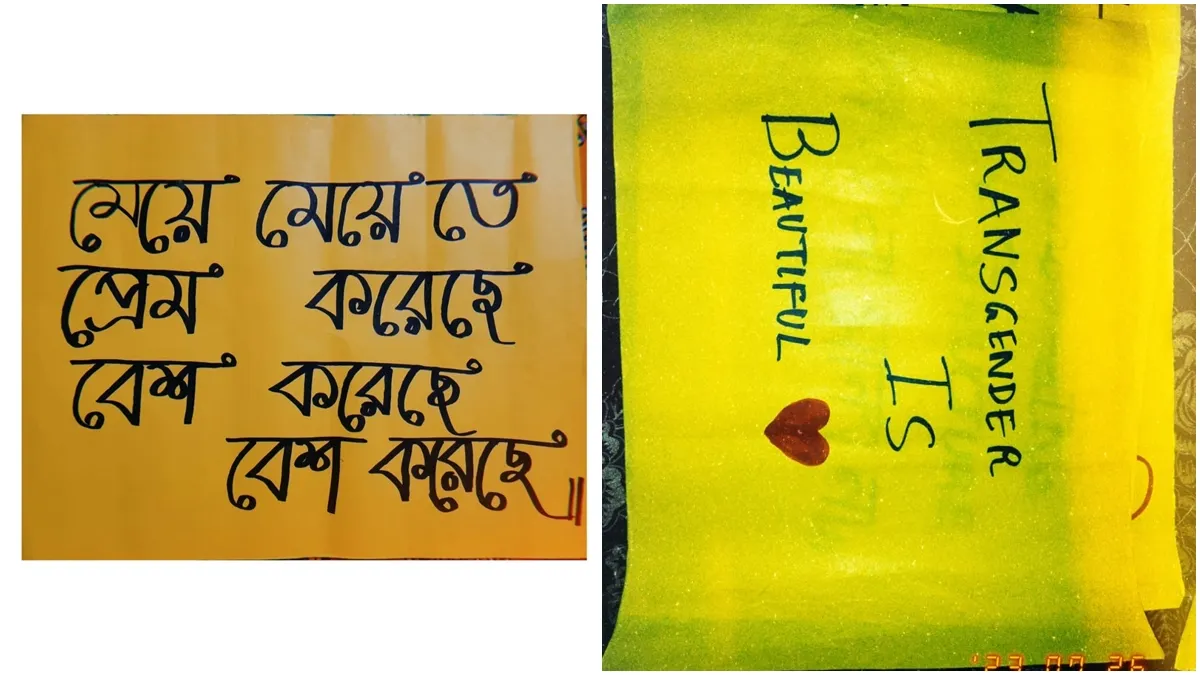 মেয়ে মেয়ে তে
প্রেম করেছে
বেশ করেছে
বেশ করেছে॥
TRANSGENDER
IS
BEAUTIFUL
'23 07 26